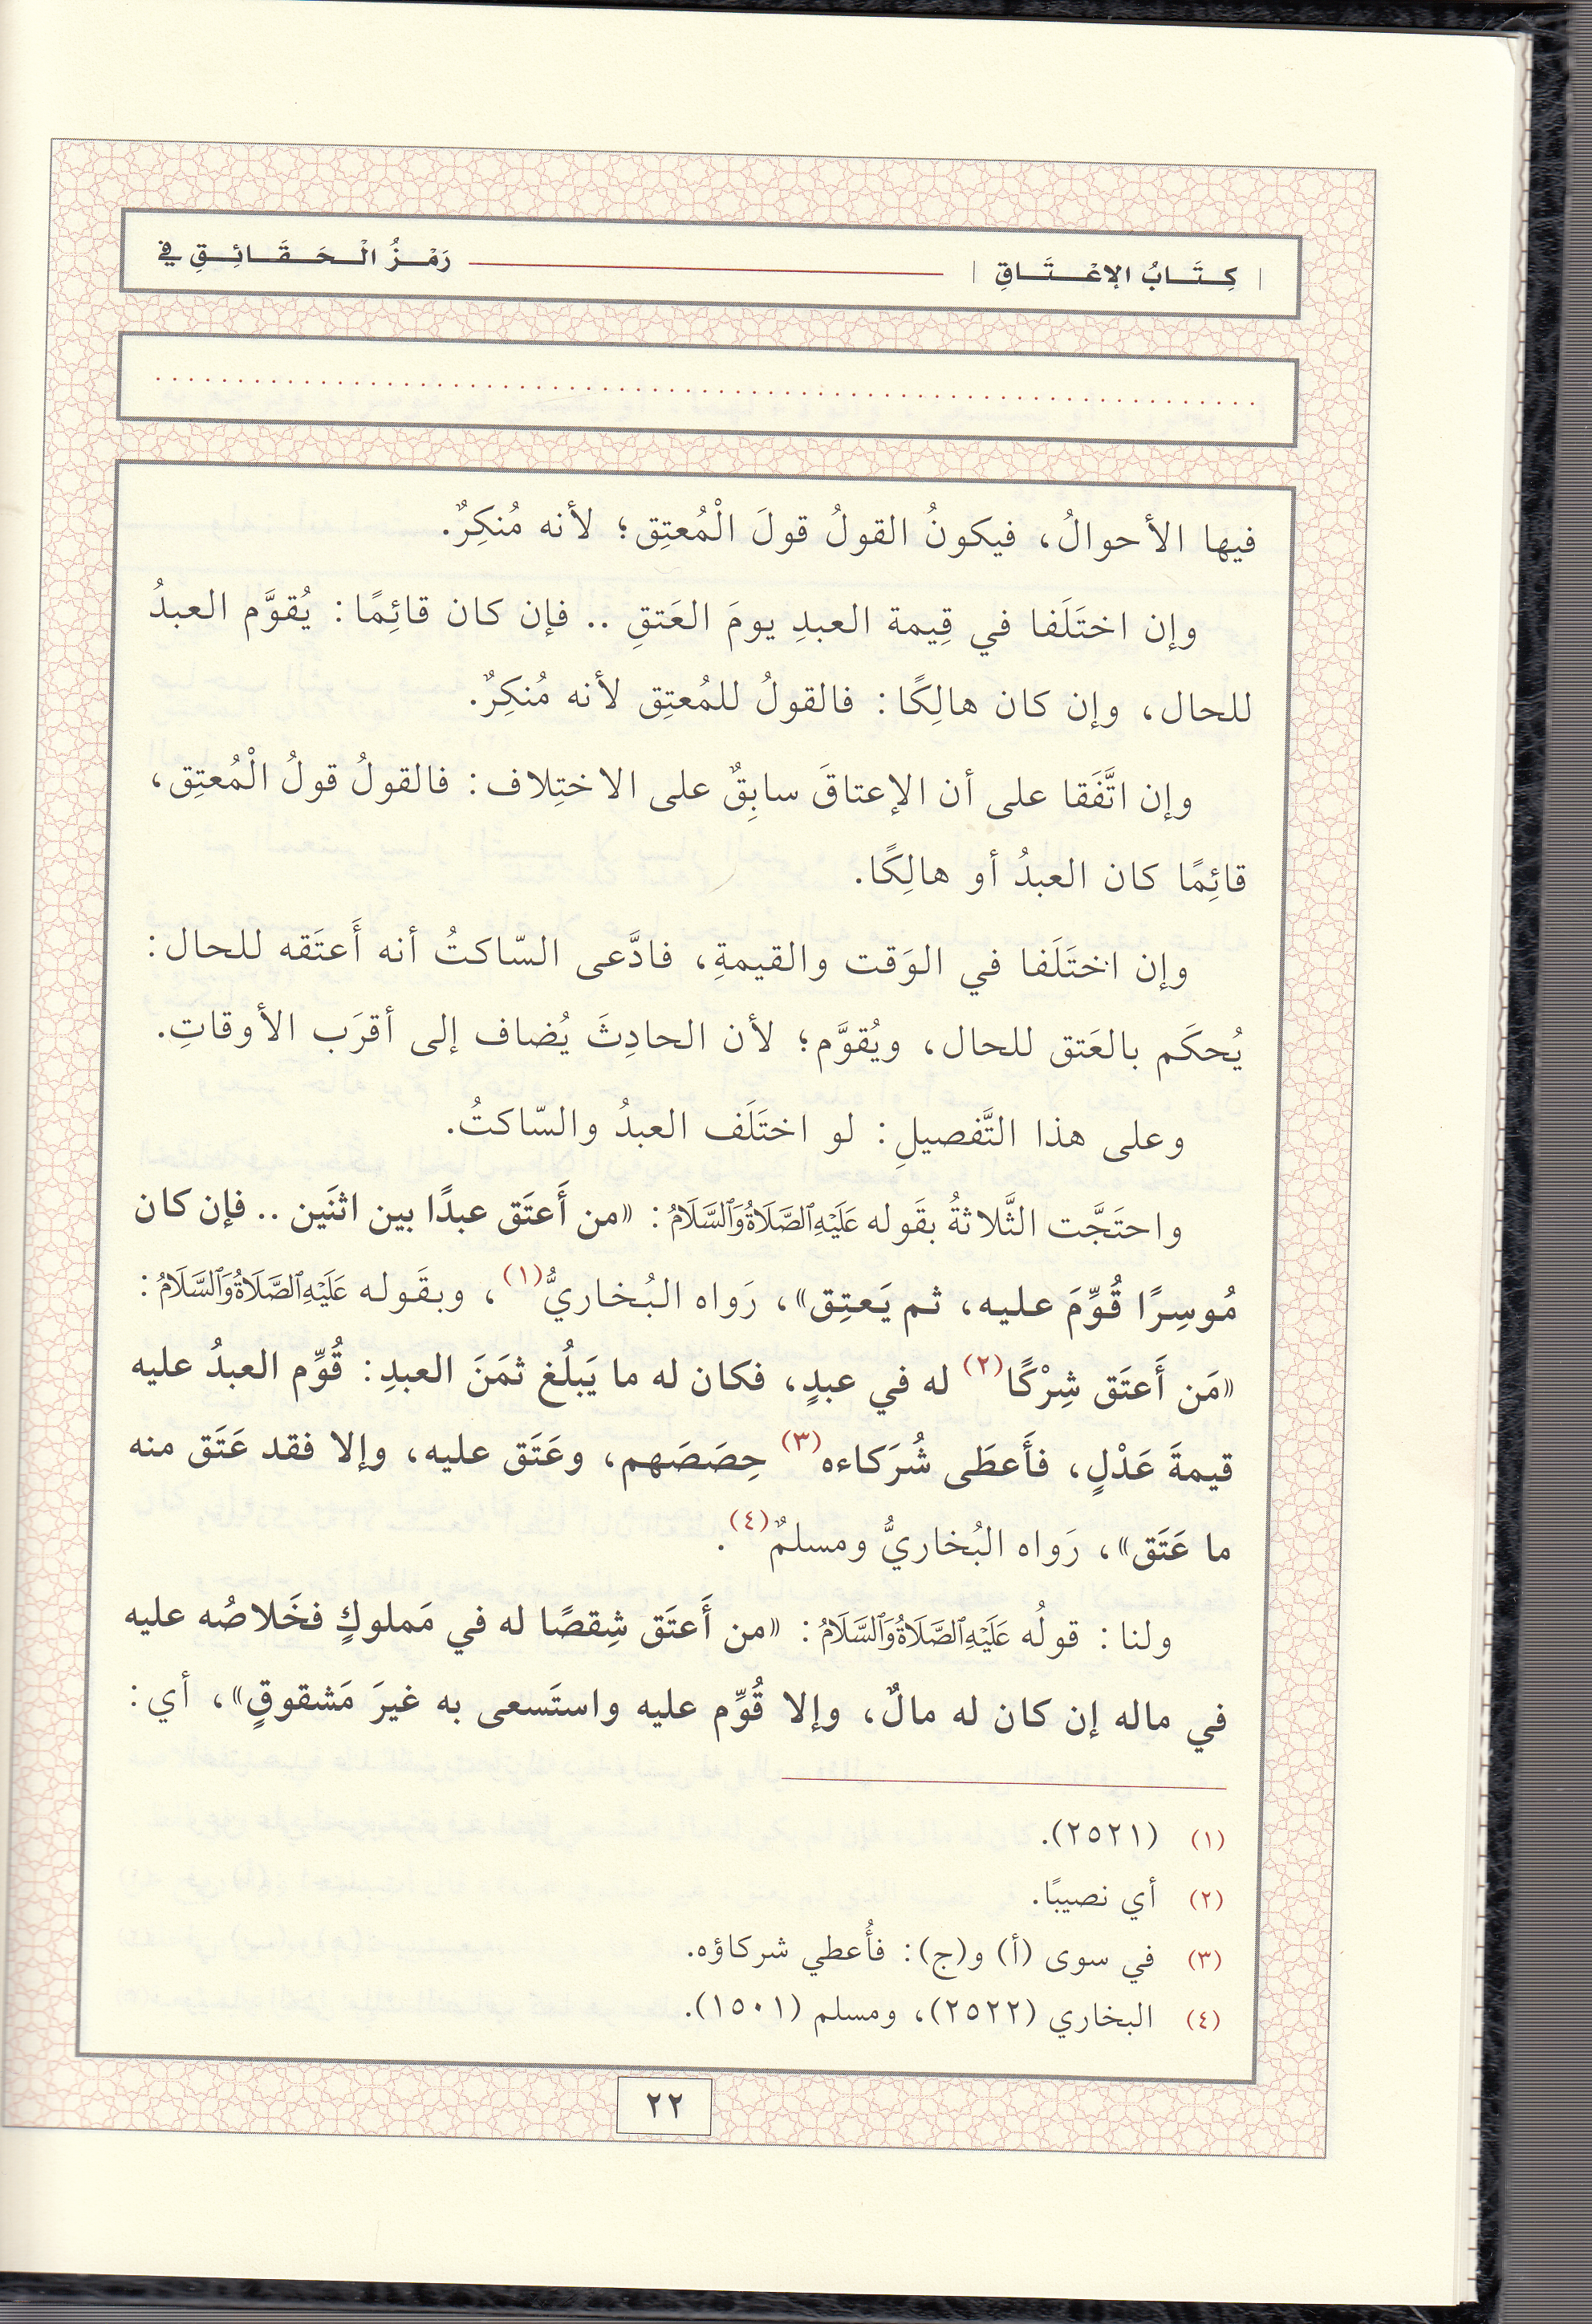 | كِتَابُ الإعْتَاقِ | رَمْزُ الْحَقَائِقِ فِي
فيها الأحوالُ، فيكونُ القولُ قولَ الْمُعتِق؛ لأنه مُنكِرٌ.
وإن اختَلَفا في قِيمة العبدِ يومَ العَتقِ .. فإن كان قائِمًا: يُقوَّم العبدُ
للحال، وإن كان هالِكًا: فالقولُ للمُعتِق لأنه مُنكِرٌ.
وإن اتَّفَقا على أن الإعتاقَ سابِقٌ على الاختِلاف: فالقولُ قولُ الْمُعتِق،
قائِمًا كان العبدُ أو هالِكًا.
وإن اختَلَفا في الوَقت والقيمةِ، فادَّعى السّاكتُ أنه أَعتَقه للحال:
يُحكَم بالعَتق للحال، ويُقوَّم؛ لأن الحادِثَ يُضاف إلى أقرَب الأوقاتِ.
وعلى هذا التَّفصيلِ: لو اختَلَف العبدُ والسّاكتُ.
واحتَجَّت الثَّلاثةُ بقَوله عَلَيْهِ الصَّلَاةُ وَالسَّلَامُ: «من أَعتَق عبدًا بين اثنَين .. فإن كان
مُوسِرًا قُوِّمَ عليه، ثم يَعتِق»، رَواه البُخاريُّ(١)، وبقَوله عَلَيْهِ الصَّلَاةُ وَالسَّلَامُ:
«مَن أَعتَق شِرْكًا(٢) له في عبدٍ، فكان له ما يَبلُغ ثمَنَ العبدِ: قُوِّم العبدُ عليه
قيمةَ عَدْلٍ، فأَعطَى شُرَكاءه(٣) حِصَصَهم، وعَتَق عليه، وإلا فقد عَتَق منه
ما عَتَق»، رَواه البُخاريُّ ومسلمٌ(٤).
ولنا: قولُه عَلَيْهِ الصَّلَاةُ وَالسَّلَامُ: «من أَعتَق شِقصًا له في مَملوكٍ فخَلاصُه عليه
في ماله إن كان له مالٌ، وإلا قُوِّم عليه واستَسعى به غيرَ مَشقوقٍ»، أي:
(١) (٢٥٢١).
(٢) أي نصيبًا.
(٣) في سوى (أ) و(ج): فأُعطي شركاؤه.
(٤) البخاري (٢٥٢٢)، ومسلم (١٥٠١).
٢٢